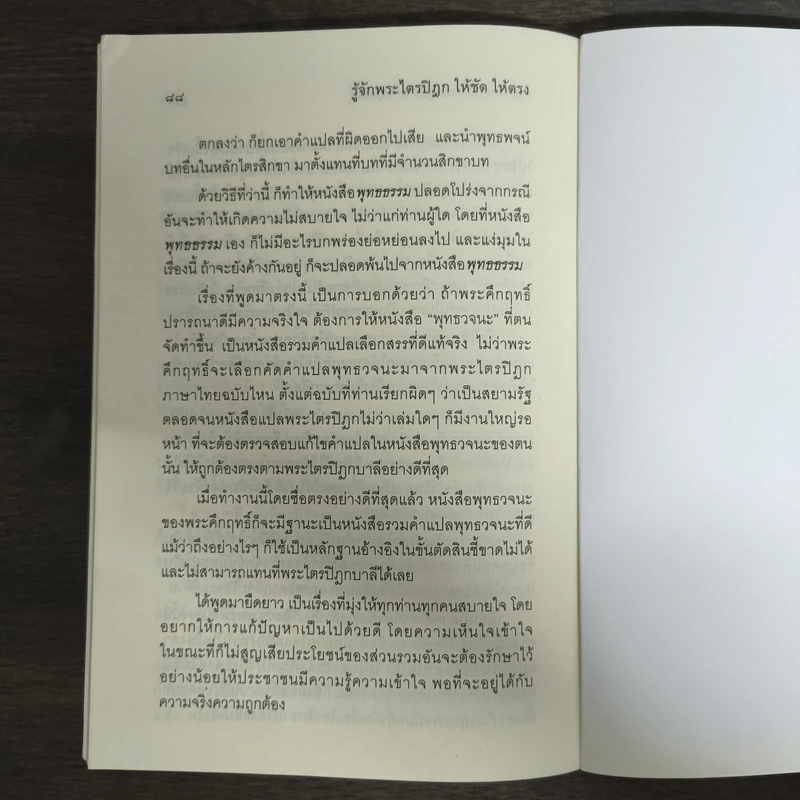 ๘๘ รู้จักพระไตรปิฎก ให้ชัด ให้ตรง
ตกลงว่า ก็ยกเอาคำแปลที่ผิดออกไปเสีย และนำพุทธพจน์
บทอื่นในหลักไตรสิกขา มาตั้งแทนที่บทที่มีจำนวนสิกขาบท
ด้วยวิธีที่ว่านี้ ก็ทำให้หนังสือพุทธธรรม ปลอดโปร่งจากกรณี
อันจะทำให้เกิดความไม่สบายใจ ไม่ว่าแก่ท่านผู้ใด โดยที่หนังสือ
พุทธธรรม เอง ก็ไม่มีอะไรบกพร่องย่อหย่อนลงไป และแง่มุมใน
เรื่องนี้ ถ้าจะยังค้างกันอยู่ ก็จะปลอดพ้นไปจากหนังสือพุทธธรรม
เรื่องที่พูดมาตรงนี้ เป็นการบอกด้วยว่า ถ้าพระคึกฤทธิ์
ปรารถนาดีมีความจริงใจ ต้องการให้หนังสือ “พุทธวจนะ” ที่ตน
จัดทำขึ้น เป็นหนังสือรวมคำแปลเลือกสรรที่ดีแท้จริง ไม่ว่าพระ
คึกฤทธิ์จะเลือกคัดคำแปลพุทธวจนะมาจากพระไตรปิฎก
ภาษาไทยฉบับไหน ตั้งแต่ฉบับที่ท่านเรียกผิดๆ ว่าเป็นสยามรัฐ
ตลอดจนหนังสือแปลพระไตรปิฎกไม่ว่าเล่มใดๆ ก็มีงานใหญ่รอ
หน้า ที่จะต้องตรวจสอบแก้ไขคำแปลในหนังสือพุทธวจนะของตน
นั้น ให้ถูกต้องตรงตามพระไตรปิฎกบาลีอย่างดีที่สุด
เมื่อทำงานนี้โดยซื่อตรงอย่างดีที่สุดแล้ว หนังสือพุทธวจนะ
ของพระคึกฤทธิ์ก็จะมีฐานะเป็นหนังสือรวมคำแปลพุทธวจนะที่ดี
แม้ว่าถึงอย่างไรๆ ก็ใช้เป็นหลักฐานอ้างอิงในขั้นตัดสินชี้ขาดไม่ได้
และไม่สามารถแทนที่พระไตรปิฎกบาลีได้เลย
ได้พูดมายืดยาว เป็นเรื่องที่มุ่งให้ทุกท่านทุกคนสบายใจ โดย
อยากให้การแก้ปัญหาเป็นไปด้วยดี โดยความเห็นใจเข้าใจ
ในขณะที่ก็ไม่สูญเสียประโยชน์ของส่วนรวมอันจะต้องรักษาไว้
อย่างน้อยให้ประชาชนมีความรู้ความเข้าใจ พอที่จะอยู่ได้กับ
ความจริงความถูกต้อง